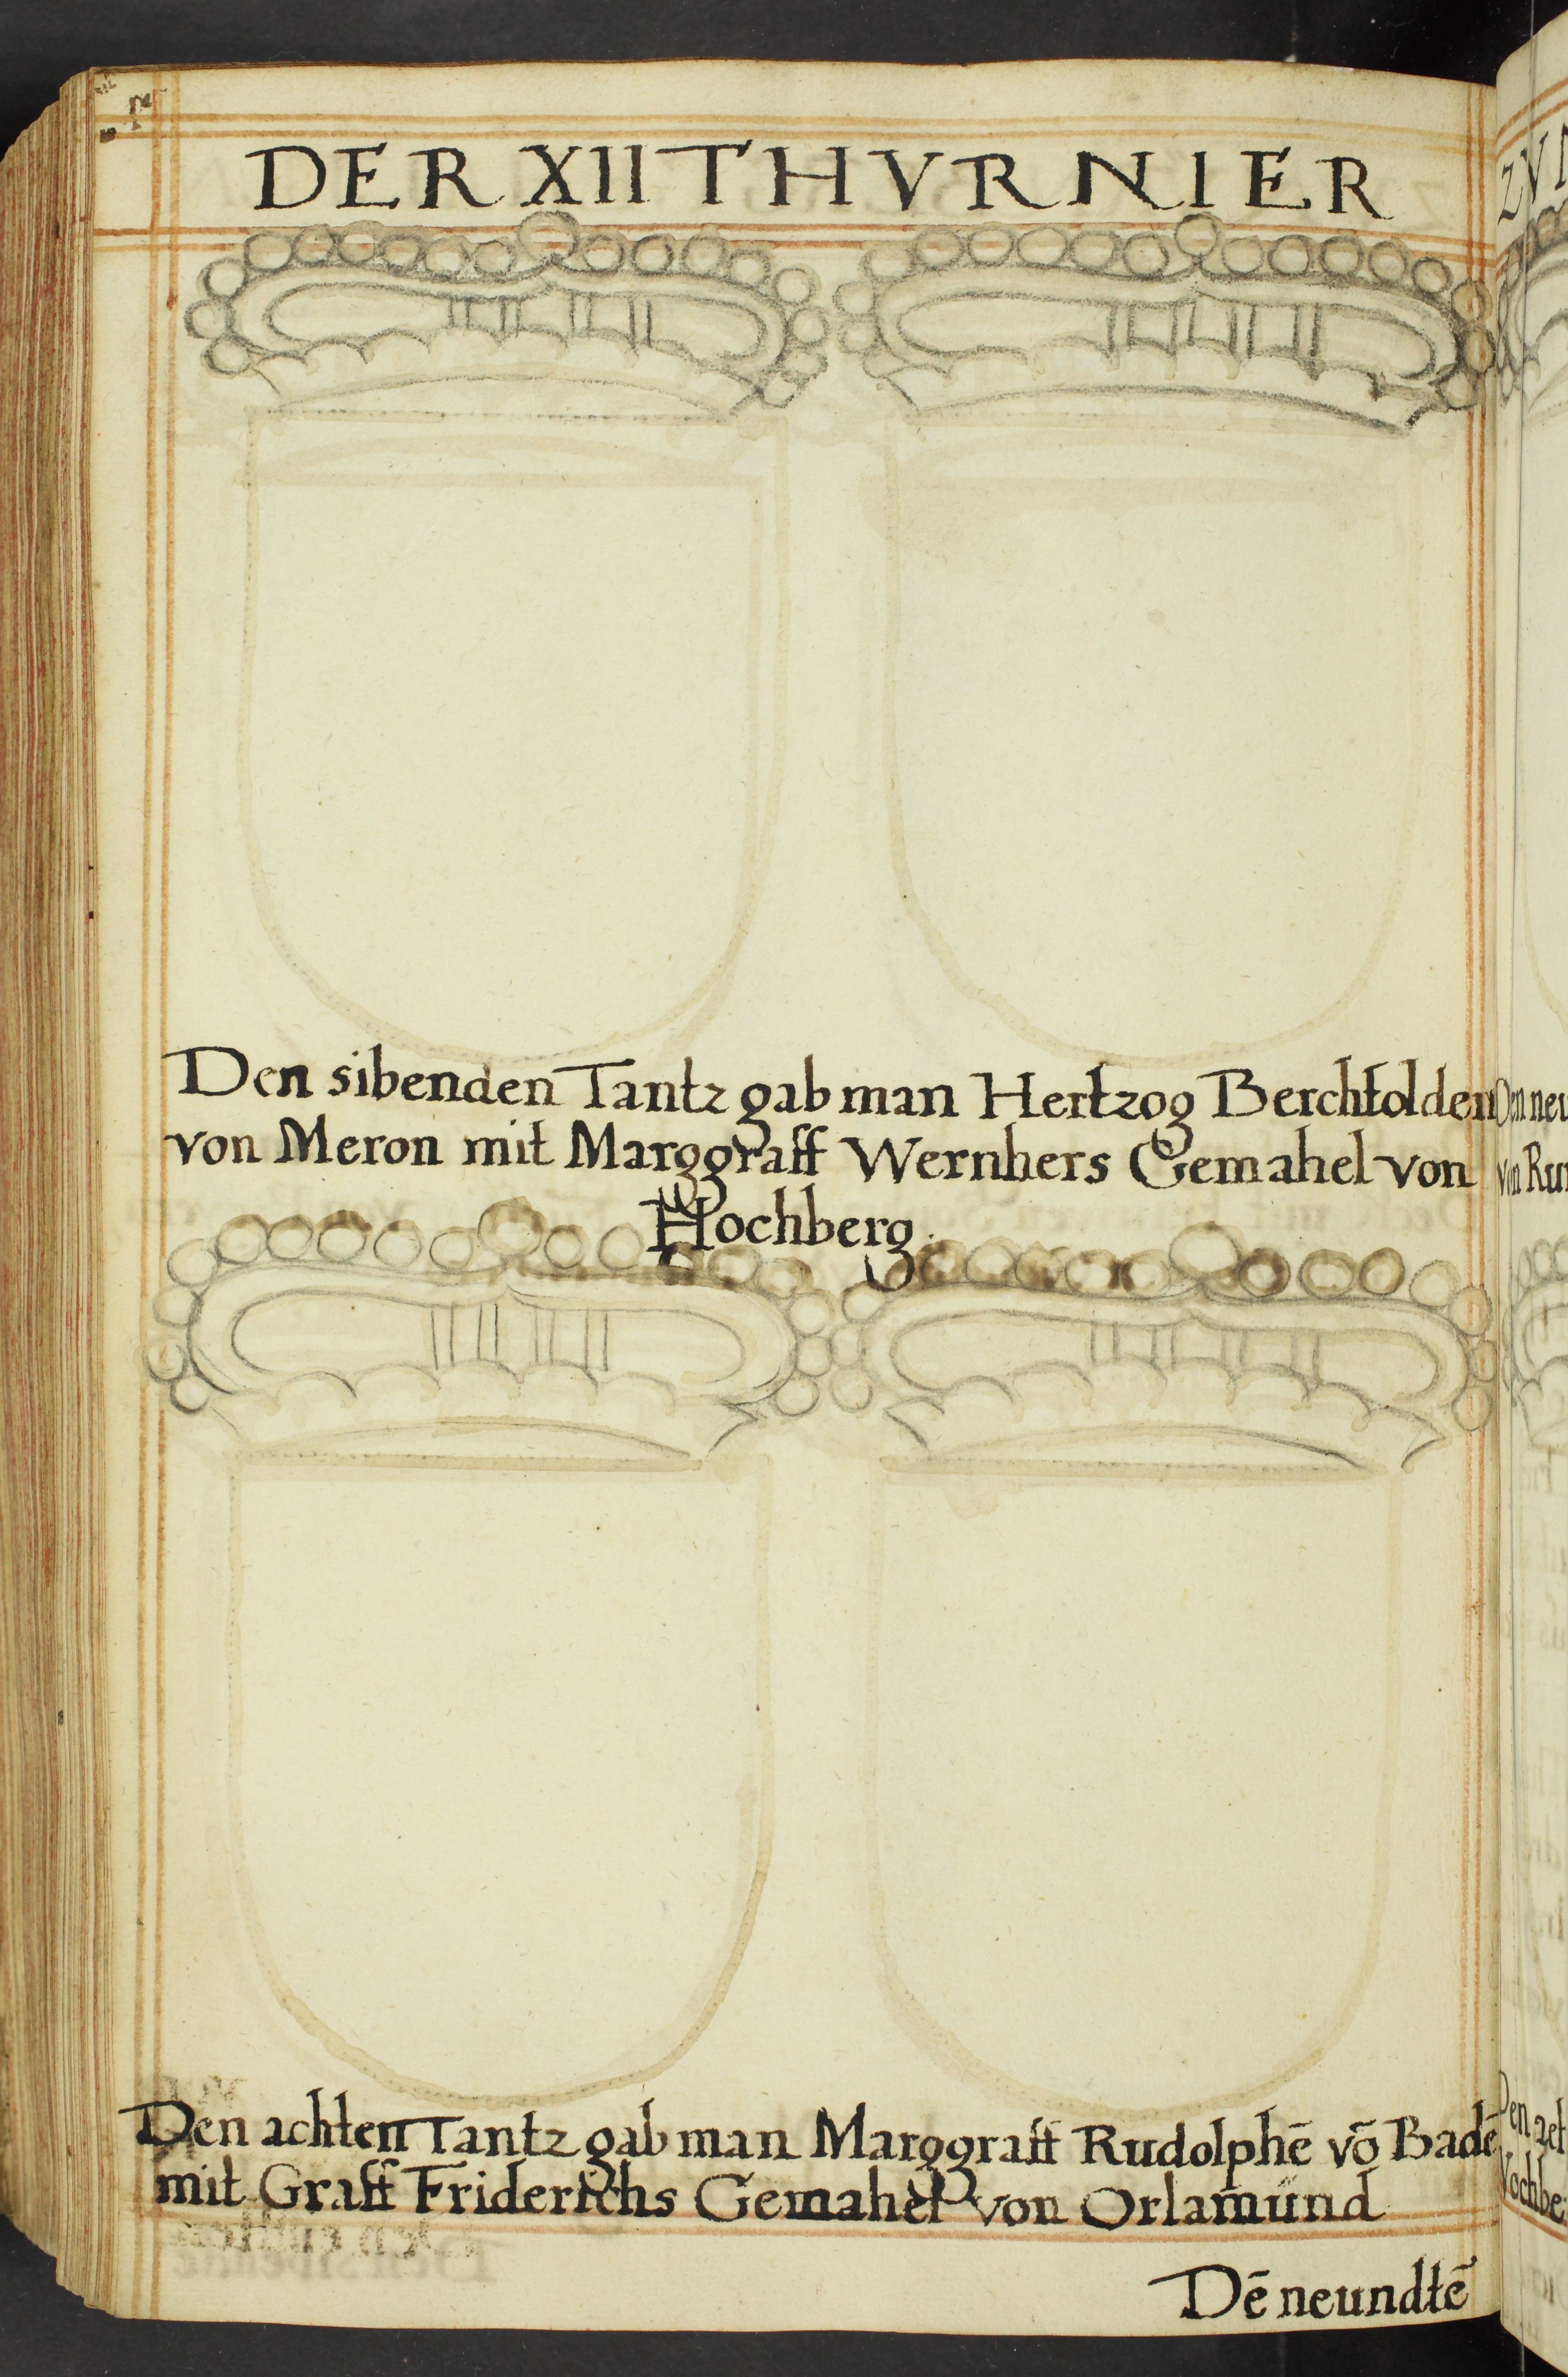 DER XII THVRNIER
Den sibenden Tantz gab man Hertzog Berchtolden
von Meron mit Marggraff Wernhers Gemahel von
Hochberg.
Den achten Tantz gab man Marggraff Rudolphē vō Badē
mit Graff Friderichs Gemahel von Orlamünd
Dē neundtē